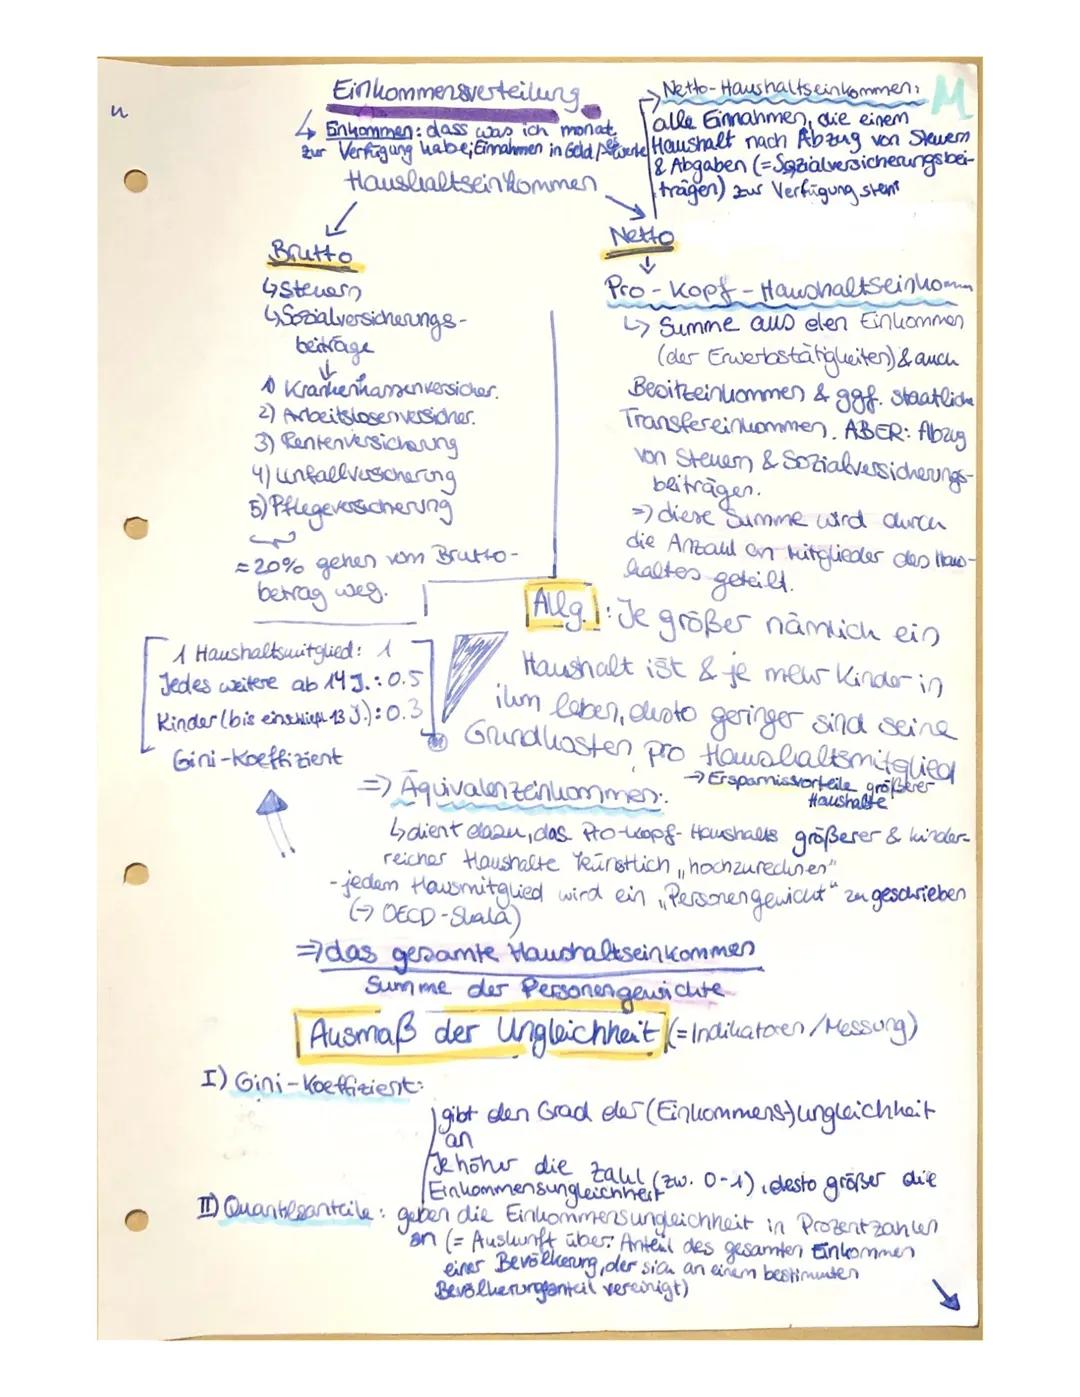 Einkommensverteilung
↳ Einkommen: dass was ich monatl.
zur Verfügung habe; Einnahmen in Geld /
Haushaltseinkommen
→ Netto-Haushaltseinkommen:
alle Einnahmen, die einem
Haushalt nach Abzug von Steuern
& Abgaben (=Sozialversicherungsbei-
trägen) zur Verfügung steht
M
Brutto
↳ Steuern
↳ Sozialversicherungs-
beiträge
↓
1) Krankenkassenversicher.
2) Arbeitslosenversicher.
3) Rentenversicherung
4) Unfallversicherung
5) Pflegeversicherung
≈ 20% gehen vom Brutto-
betrag weg.
Netto
↓
Pro-Kopf-Haushaltseinkomm
↳ Summe aus den Einkommen
(der Erwerbstätigkeiten) & auch
Besitzeinkommen & ggf. staatliche
Transfereinkommen. ABER: Abzug
von Steuern & Sozialversicherungs-
beiträgen.
=> diese Summe wird durch
die Anzahl an Mitglieder des Haus-
haltes geteilt.
Allg.: Je größer nämlich ein
Haushalt ist & je mehr Kinder in
ihm leben, desto geringer sind seine
Grundkosten pro Haushaltsmitglied
→ Ersparnisvorteile größerer
Haushalte
1 Haushaltsmitglied: 1
Jedes weitere ab 14 J.: 0.5
Kinder (bis einschließl 13 J.): 0.3
Gini-Koeffizient
=> Äquivalenzeinkommen:
↳ dient dazu, das Pro-Kopf-Haushalts größerer & kinder-
reicher Haushalte künstlich „hochzurechnen"
- jedem Hausmitglied wird ein „Personengewicht" zugeschrieben
(→ OECD-Skala)
=> das gesamte Haushaltseinkommen
Summe der Personengewichte
Ausmaß der Ungleichheit (=Indikatoren/Messung)
I) Gini-Koeffizient:
gibt den Grad der (Einkommens-)ungleichheit
an
Je höher die Zahl (zw. 0-1), desto größer die
Einkommensungleichheit
II) Quantilsanteile: geben die Einkommensungleichheit in Prozentzahlen
an (= Auskunft über: Anteil des gesamten Einkommen
einer Bevölkerung, der sich an einem bestimmten
Bevölkerungsanteil vereinigt)